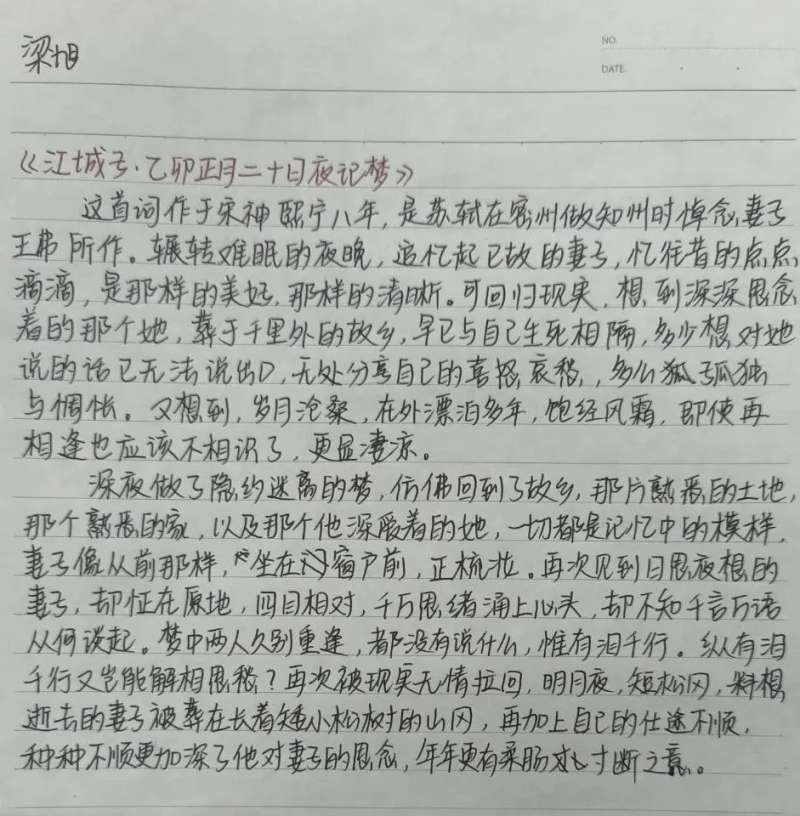 NO.
梁旭
DATE
《江城子·乙卯正月二十日夜记梦》
这首词作于宋神熙宁八年，是苏轼在密州做知州时悼念妻子
王弗所作。辗转难眠的夜晚，追忆起已故的妻子，忆往昔的点点
滴滴，是那样的美好，那样的清晰。可回归现实，想到深深思念
着的那个她，葬于千里外的故乡，早已与自己生死相隔，多少想对她
说的话已无法说出口，无处分享自己的喜怒哀愁，多么孤独
与惆怅。又想到，岁月沧桑，在外漂泊多年，饱经风霜，即使再
相逢也应该不相识了，更显凄凉。
深夜做了隐约迷离的梦，仿佛回到了故乡，那片熟悉的土地，
那个熟悉的家，以及那个他深爱着的她，一切都是记忆中的模样，
妻子像从前那样，坐在窗户前，正梳妆。再次见到日思夜想的
妻子，却怔在原地，四目相对，千万思绪涌上心头，却不知千言万语
从何谈起。梦中两人久别重逢，都没有说什么，惟有泪千行。纵有泪
千行又岂能解相思愁？再次被现实无情拉回，明月夜，短松冈，料想
逝去的妻子被葬在长着矮小松树的山冈，再加上自己的仕途不顺，
种种不顺更加深了他对妻子的思念，年年更有柔肠寸断之意。